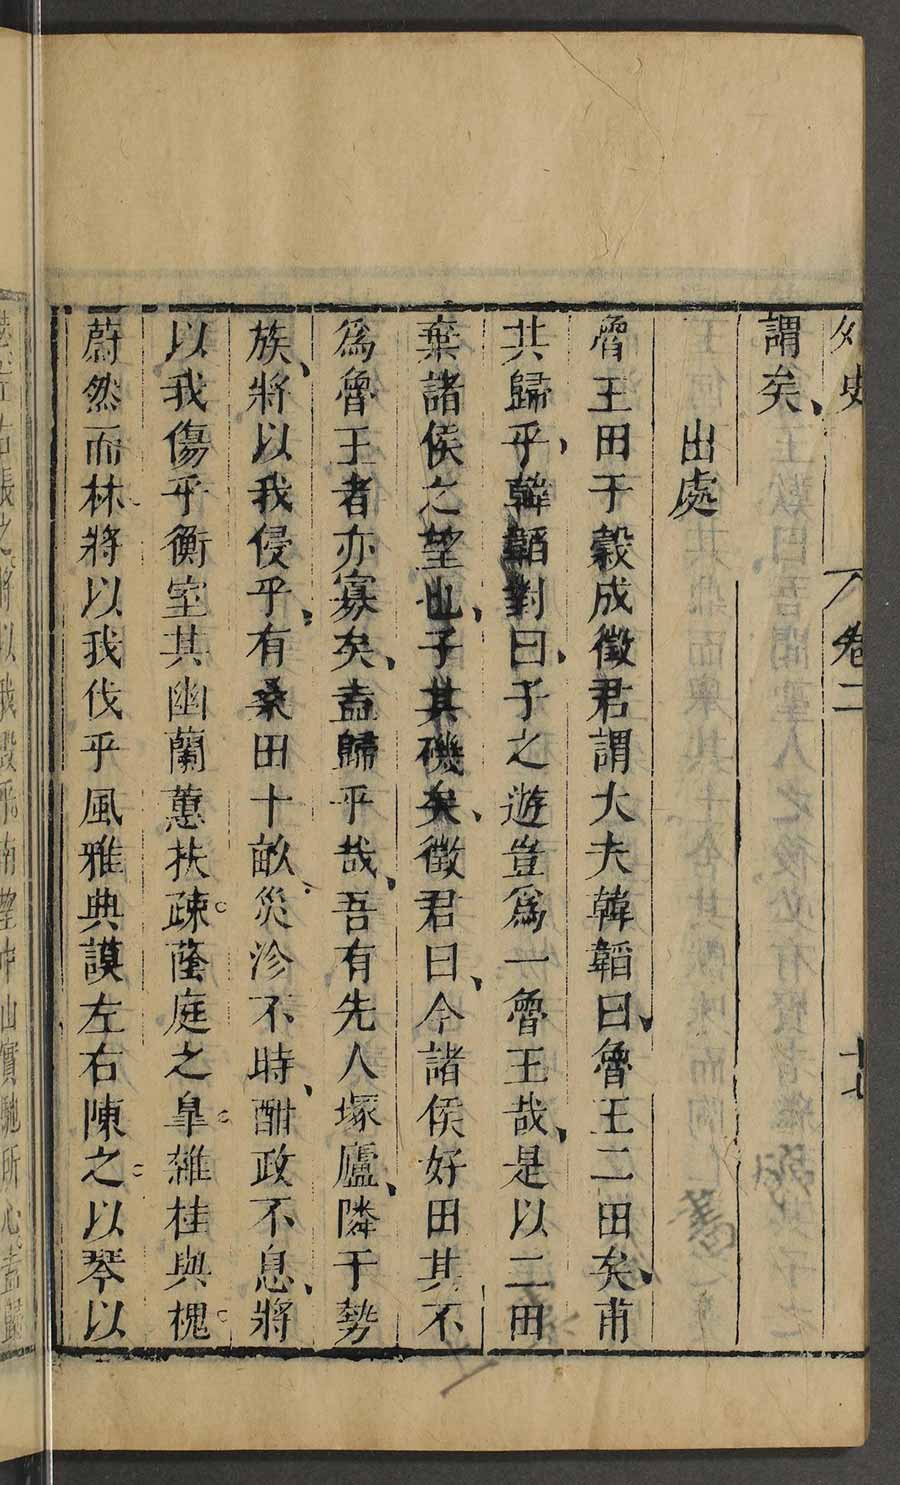 外史 卷二
謂矣
出處
魯王田于穀成徵君謂大夫韓韜曰魯王二田矣甫
共歸乎韓韜對曰子之遊豈爲一魯王哉是以二田
棄諸侯之望也子其磯矣徵君曰今諸侯好田其不
爲魯王者亦寡矣盍歸乎哉吾有先人塚廬隣于勢
族將以我侵乎有桑田十畝災沴不時酣政不息將
以我傷乎衡室其幽蘭蕙扶疎蔭庭之皐雜桂與槐
蔚然而林將以我伐乎風雅典謨左右陳之以琴以